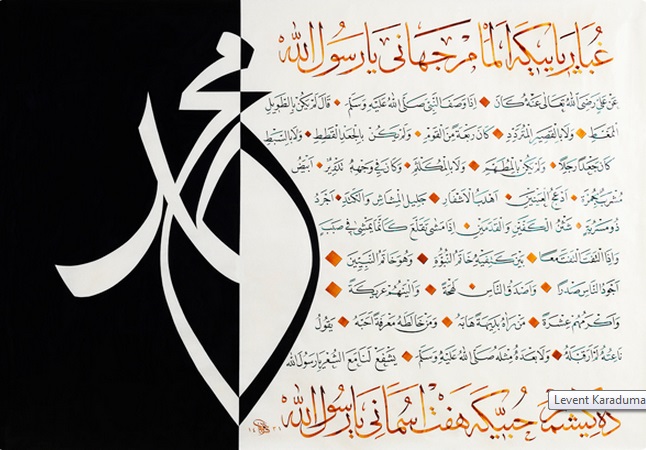 محمد
غبار پایکه المام جهانی یا رسول الله
عن علي رضي الله تعالى عنه كان إذا وصف النبي صلى الله عليه وسلم قال لم يكن بالطويل
الممغط ولا بالقصير المتردد كان ربعة من القوم ولم يكن بالجعد القطط ولا بالسبط
كان جعدا رجلا ولم يكن بالمطهم ولا بالمكلثم وكان في وجهه تدوير أبيض
مشرب حمرة أدعج العينين أهدب الأشفار جليل المشاش والكتد أجرد
ذو مسربة شثن الكفين والقدمين إذا مشى تقلع كأنما يمشي في صبب
وإذا التفت التفت معا بين كتفيه خاتم النبوة وهو خاتم النبيين
أجود الناس صدرا وأصدق الناس لهجة وألينهم عريكة
وأكرمهم عشرة من رآه بديهة هابه ومن خالطه معرفة أحبه يقول
ناعته لم أر قبله ولا بعده مثله صلى الله عليه وسلم يشفع لنا يا رسول الله
هفت اسمانی یا رسول الله
Levent Karaduma
١٤٣١